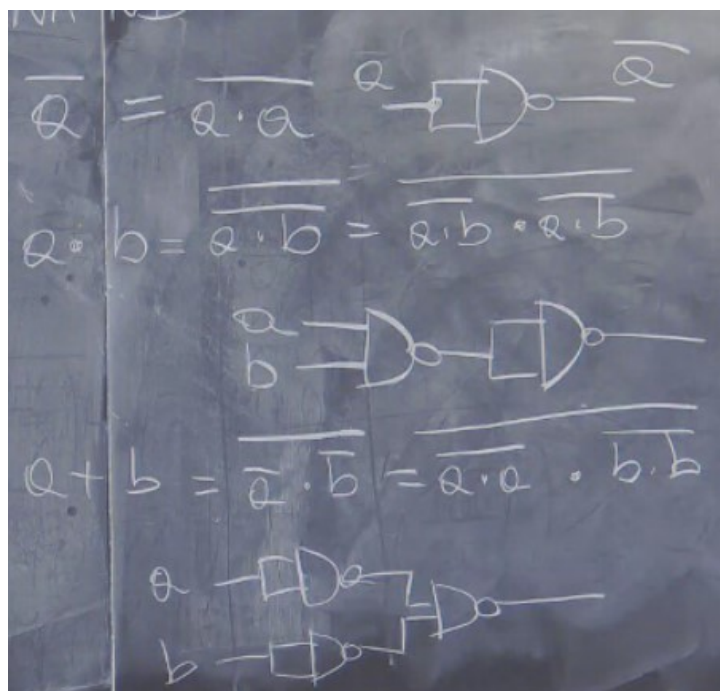 NAND
a̅ = \overline{a · a}
a
\overline{a}
a · b = \overline{\overline{a · b}} = \overline{\overline{a · b} · \overline{a · b}}
a
b
a + b = \overline{\overline{a} · \overline{b}} = \overline{\overline{a · a} · \overline{b · b}}
a
b